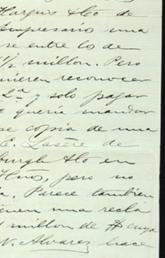 Harguis & Co de
Empresario una
se entre lo de
1/2 millon. Pero
uieren reconocer
La y solo pagar
queria mandar
se copia de una
Lasere de
burgh & Co en
pero no
Parece tambien
ienen una recla
millon de
N. Alvarez hace